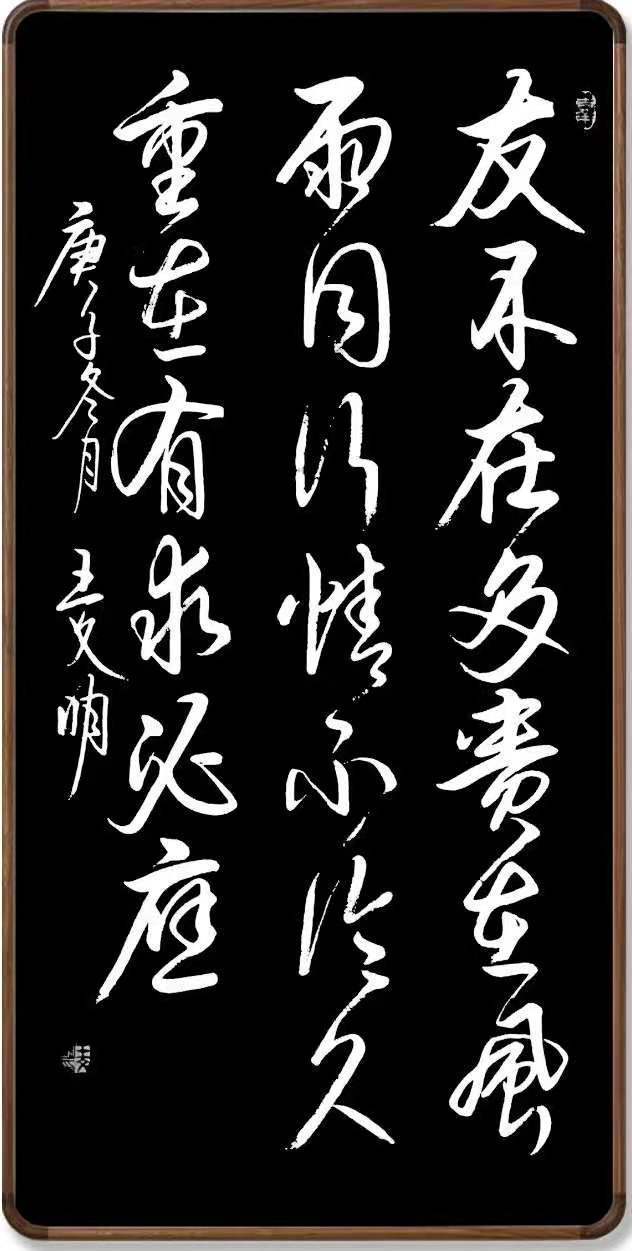 友不在多貴在風
雨同行情不论久
重在有求必應
庚子冬月 王文明